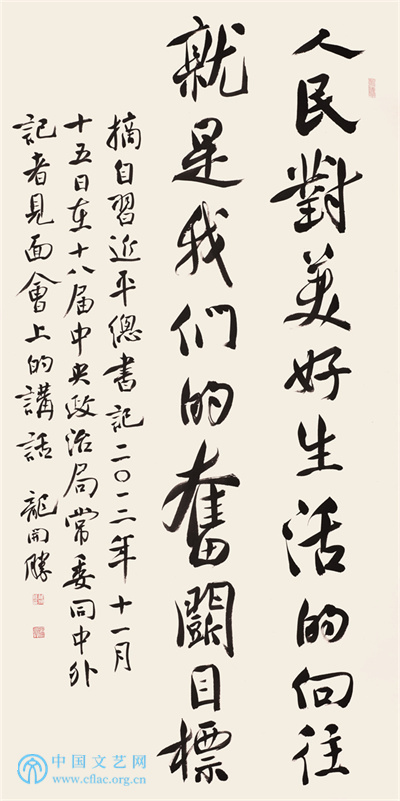 人民對美好生活的向往
就是我们的奮鬪目標
摘自習近平總書記二〇一二年十一月
十五日在十八届中央政治局常委同中外
記者見面會上的講話 龍開勝
中国文艺网
www.cflac.org.cn